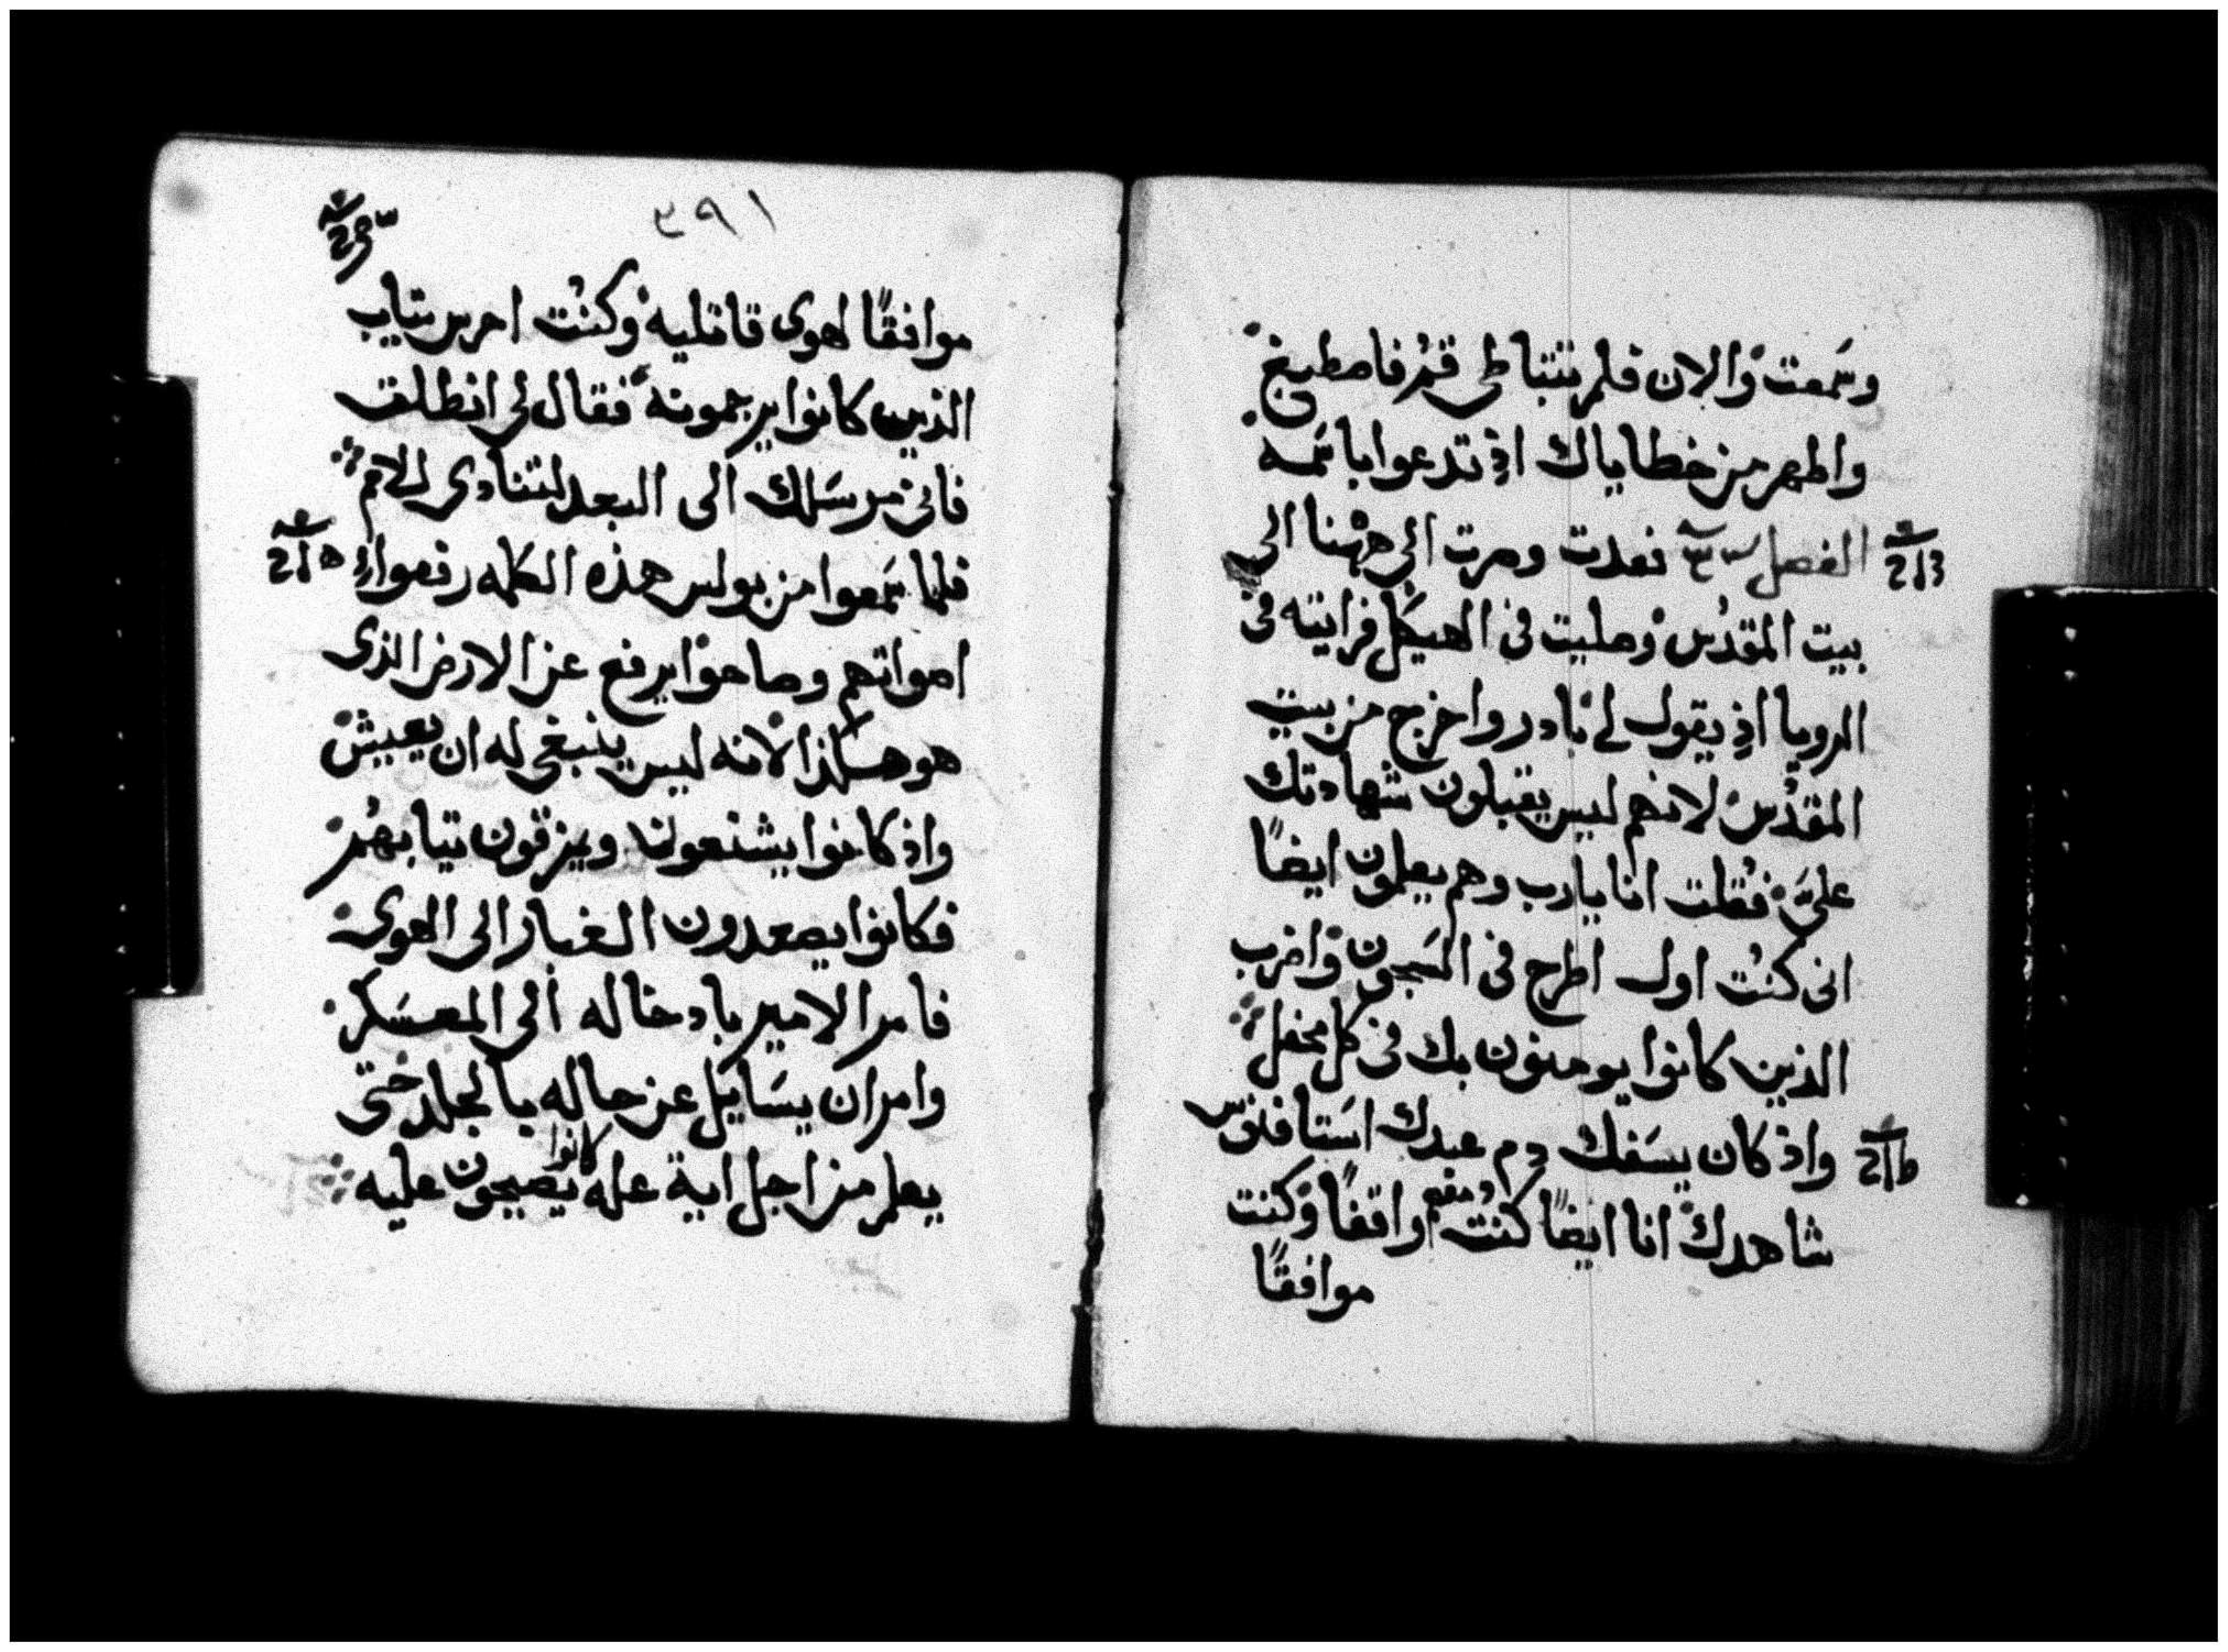 وسَمعت والان فلم تتباطى قُم فاصطبغ
واطهر من خطاياك اذ تدعوا باسَمه
الفصل فعدت وصرت الى ههنا الى
بيت المقدُس وصليت فى الهيكل فرايته فى
الرويا اذ يقول لى بادر واخرج من بيت
المقدُس لانهم ليس يقبلون شهادتك
علىَّ فقُلت انا يارب وهم يعلمون ايضاً
انى كنُت اول اطرح فى السَجون واضرب
الذين كانوا يومنون بك فى كل محفل
واذ كان يسَفك دم عبدك اسَتافنوس
شاهدك انا ايضاً كنت معهم واقفاً وكنت
موافقاً
٣٩١
موافقاً لهوى قاتليه وكنُت احرس تياب
الذين كانوا يرجمونه فقال لى انطلق
فانى مرسَلك الى البعد لتنادى للامم
فلما سَمعوا من بولس هذه الكلمه رفعوا
اصواتهم وصاحوا يرفع عن الارض الذى
هو هكذا لانه ليس ينبغى له ان يعيش
واذ كانوا يشنعون ويمزقون تيابهُم
فكانوا يصعدون الغبار الى الهوى
فامر الامير بادخاله الى المعسَكر
وامر ان يسَايَل عن حاله بالجلد حتى
يعلم من اجل اية عله كانوا يصيحون عليه